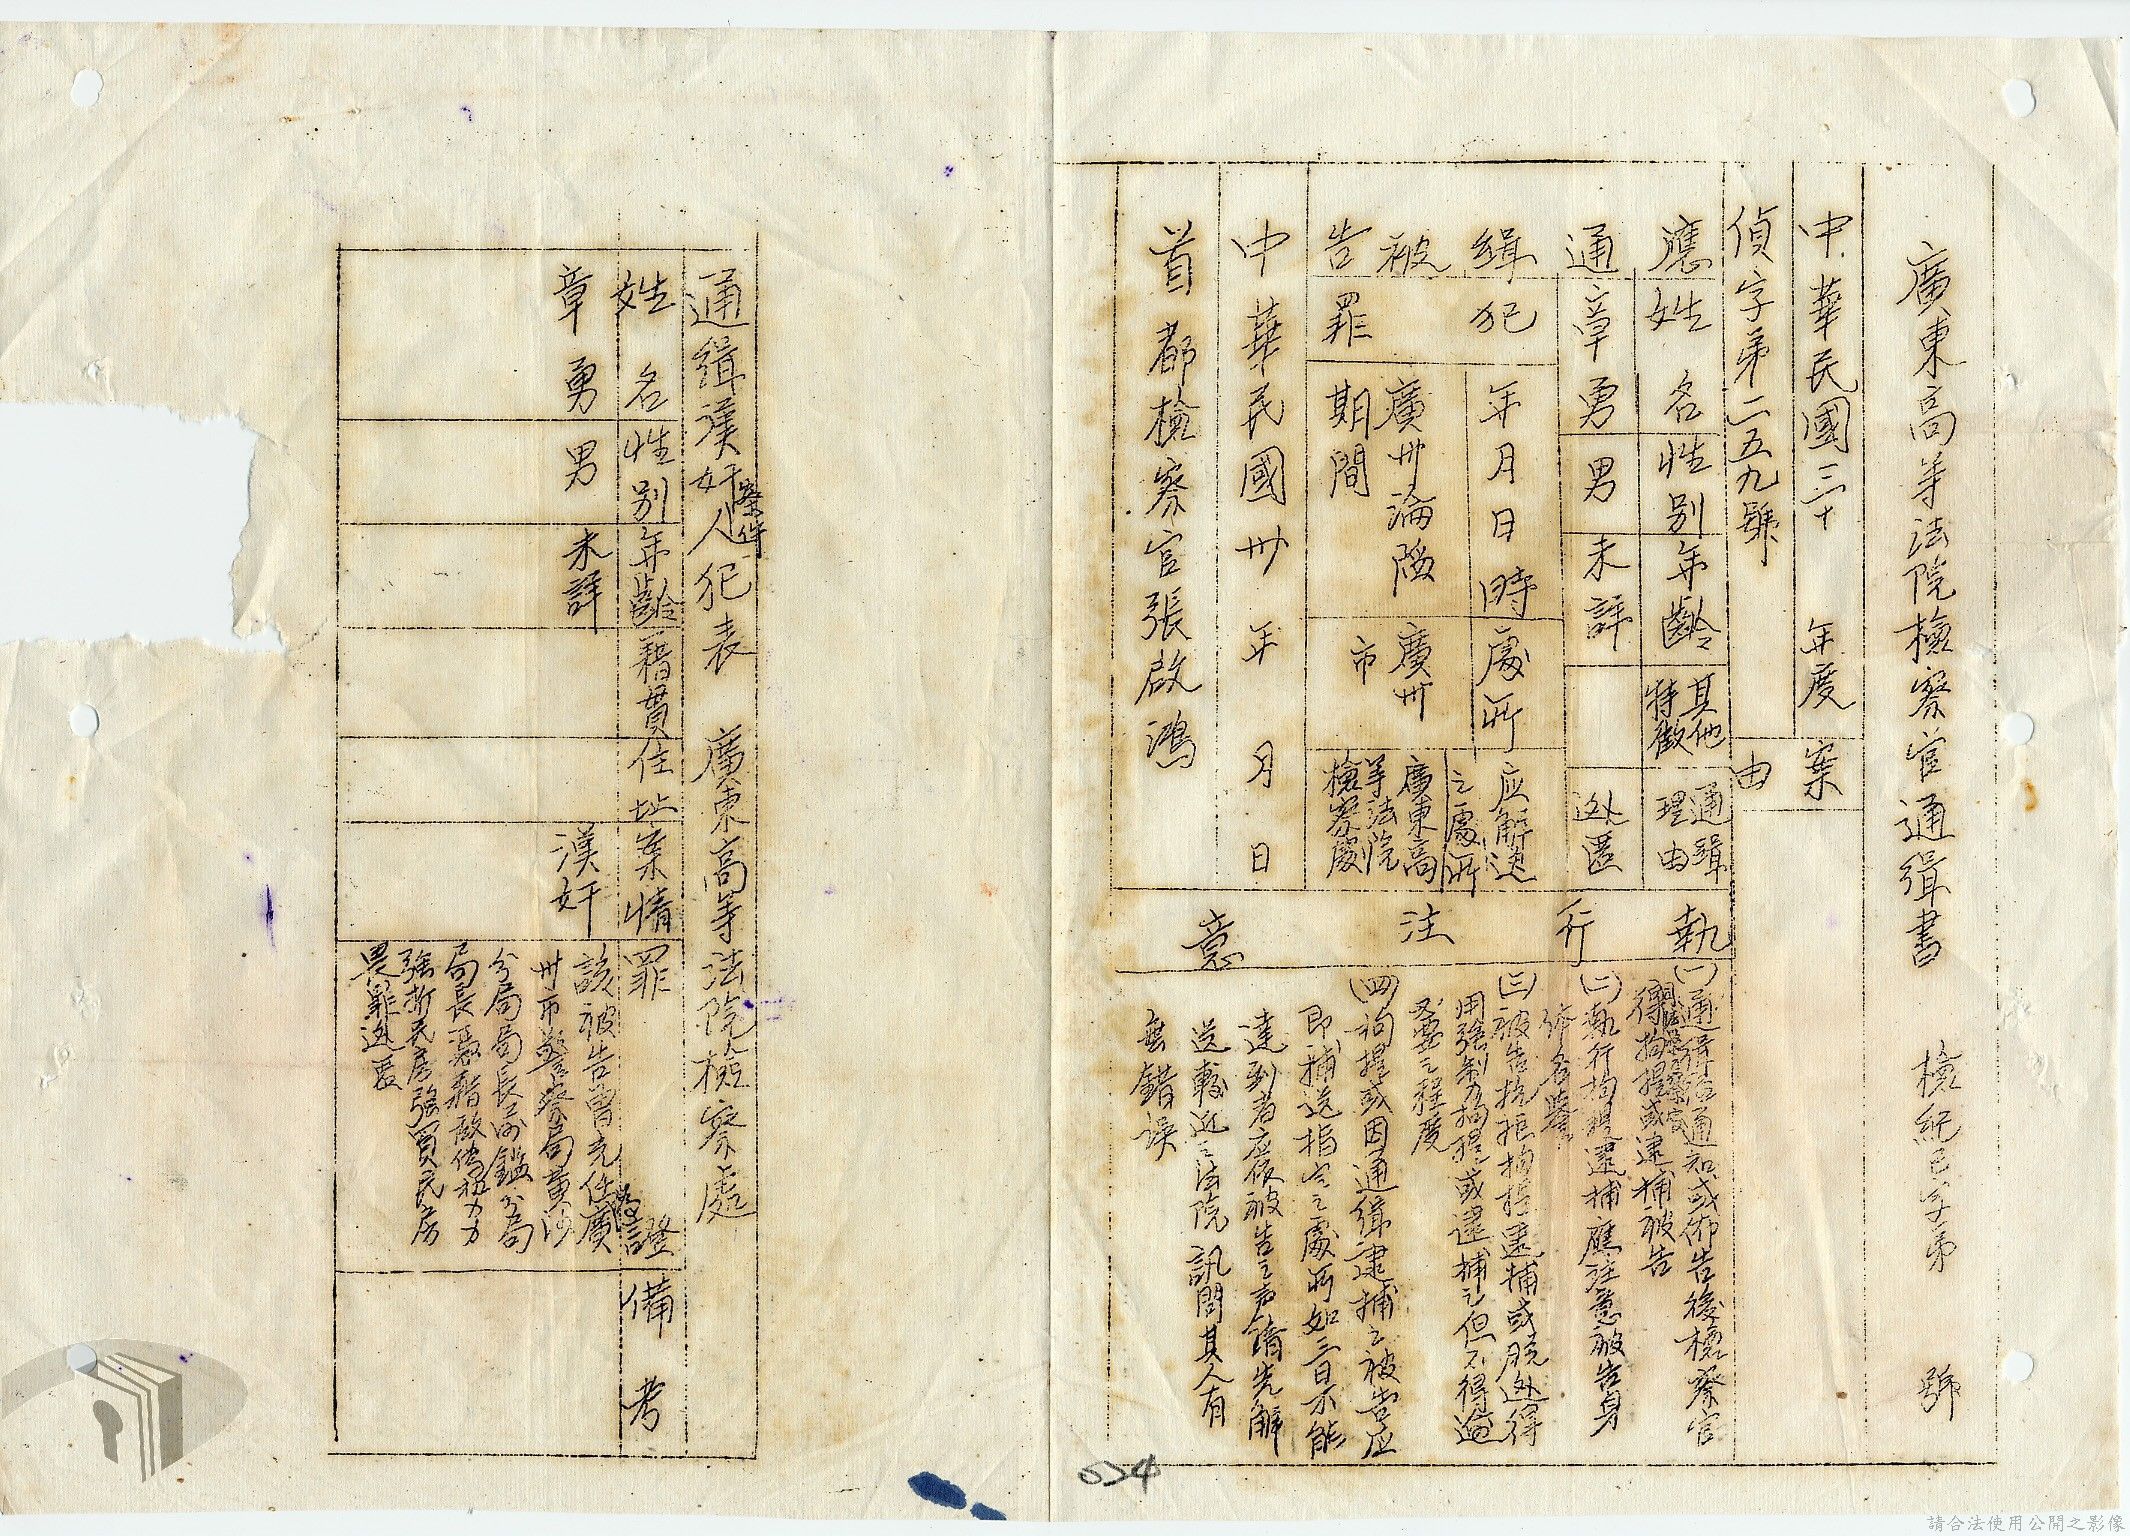 廣東高等法院檢察官通緝書 檢紀己字第 號
中華民國三十 年度
偵字第二五九號
案由
應通緝被告
姓名 性別 年齡 其他特徵 通緝理由
章勇 男 未詳 逃匿
犯罪
年月日時 處所 应解送之處所
廣州淪陷期間 廣州市 廣東高等法院檢察處
中華民國卅 年 月 日
首都檢察官張啟鴻
執行注意
(一)通緝經通知或佈告後檢察官
得拘提或逮捕被告
(二)執行拘提逮捕應注意被告身
体名譽
(三)被告抗拒拘提逮捕或脫逃得
用強制力拘提或逮捕之但不得逾
必要之程度
(四)拘提或因通緝逮捕之被告应
即補送指定之處所如三日不能
達到者应依被告之声請先解
送較近之法院訊問其人有
無錯誤
024
通緝漢奸案件人犯表 廣東高等法院檢察處
姓名 性別 年齡 籍貫 住址 案情 罪證 備考
章勇 男 未詳 漢奸
該被告曾充任廣
州市警察局黃沙
分局局長
局長憑藉敵偽努力
強拆民房強買民房
畏罪逃匿
請合法使用公開之影像